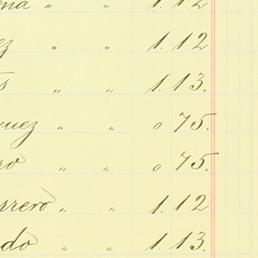 ma " " 1.12
ez " " 1.12
s " " 1.13.
quez " " 0 75.
so " " 0 75.
rrero " " 1.12
do " " 1.13.